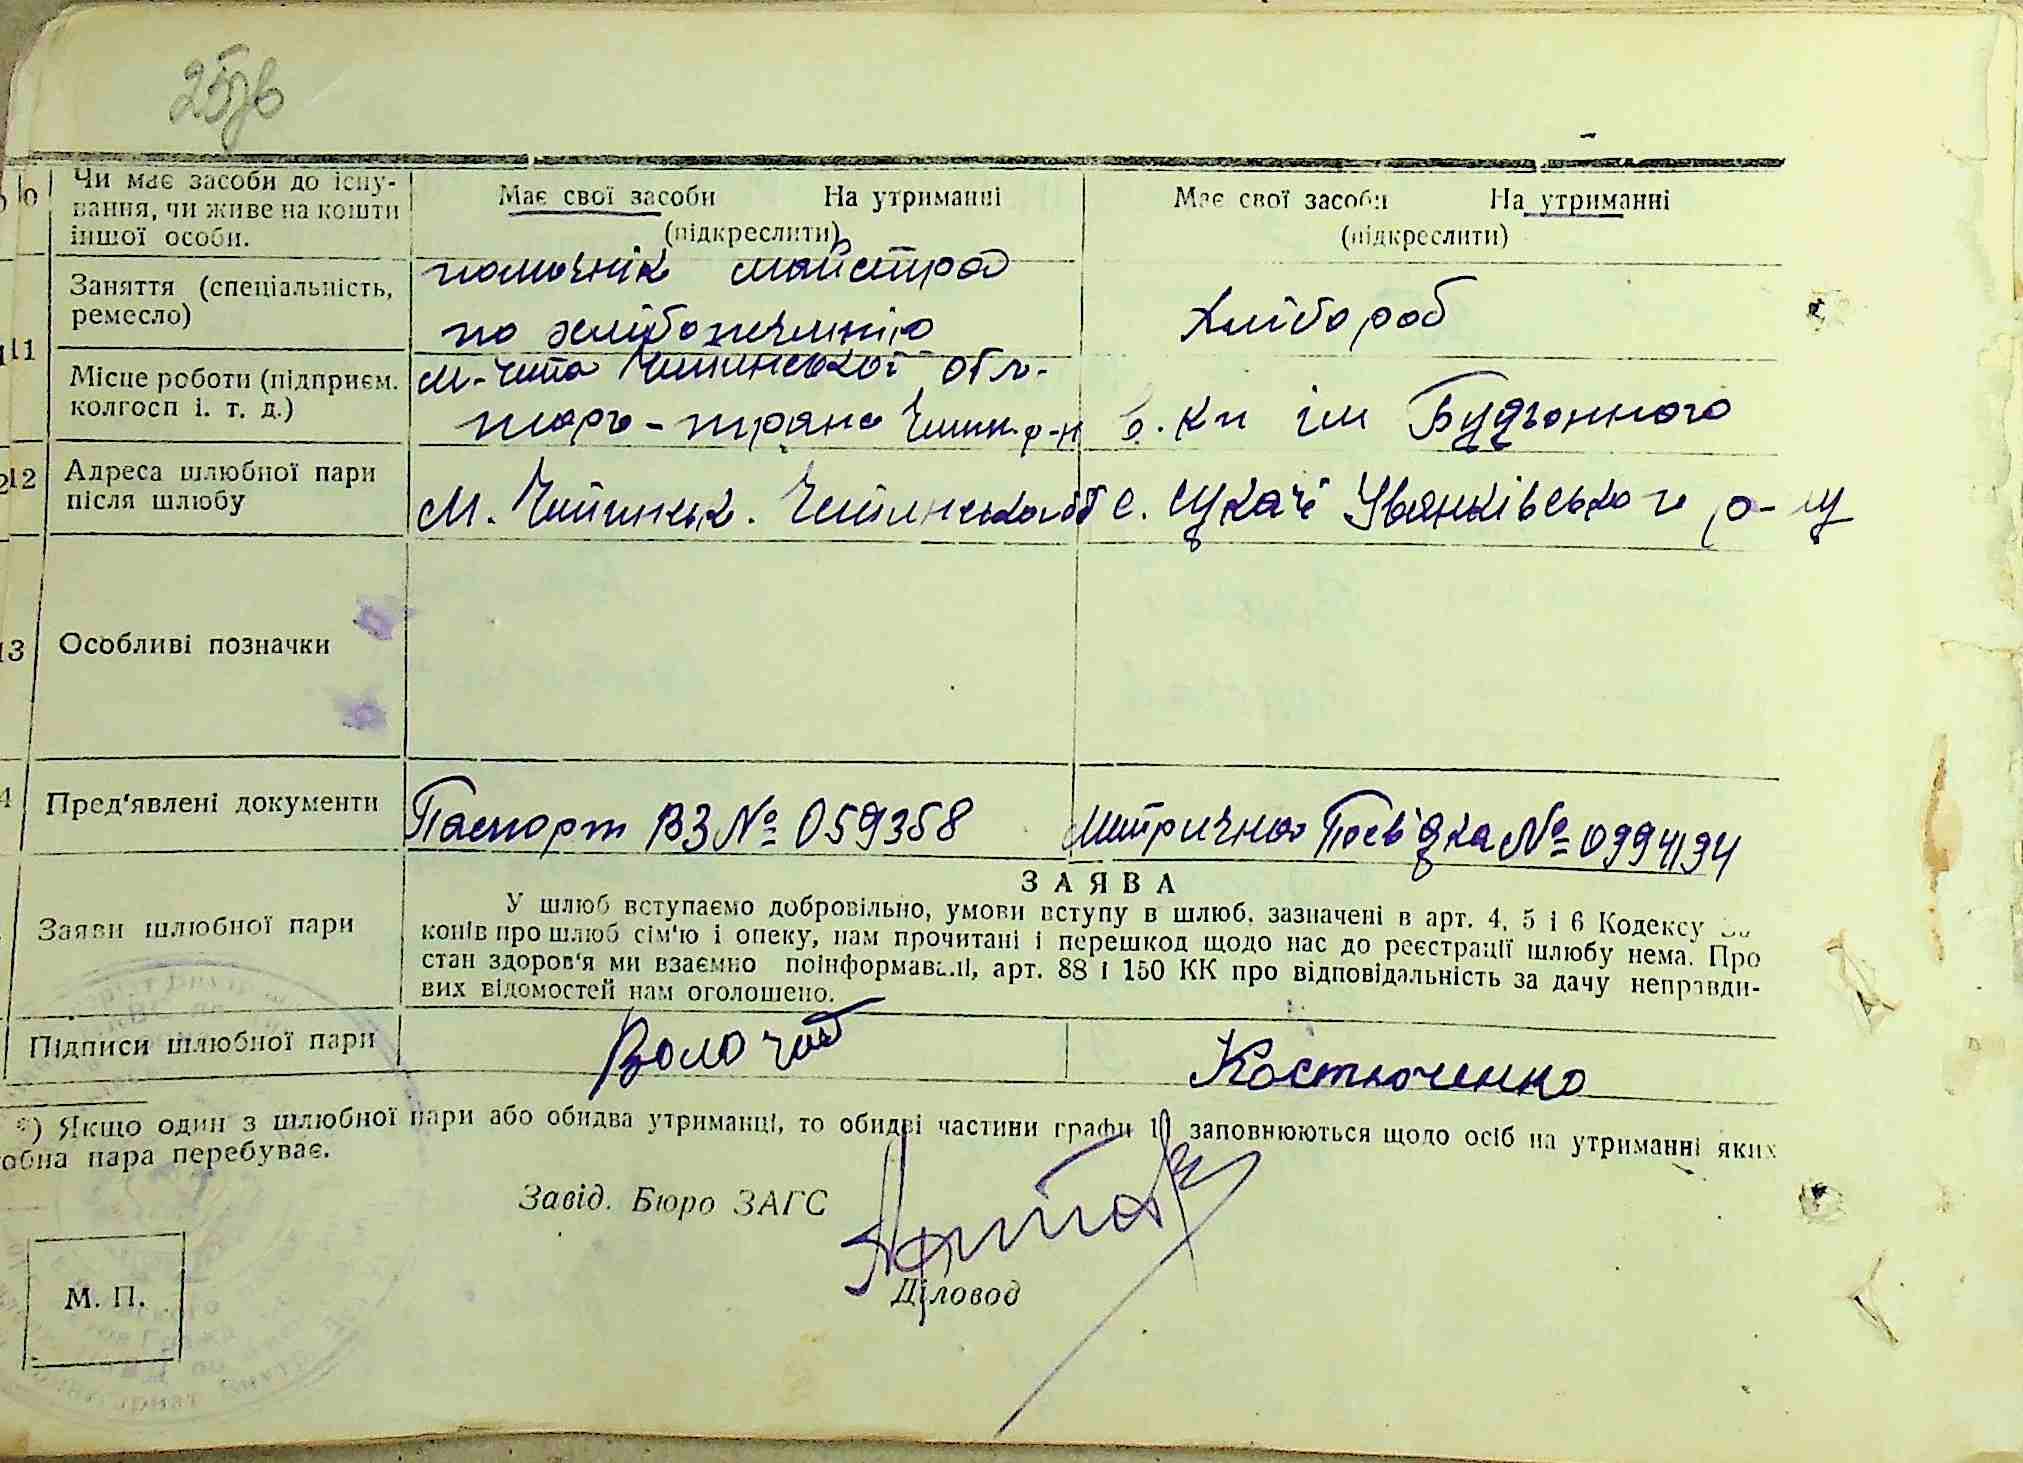 25зв
10 Чи має засоби до існу-
вання, чи живе на кошти
іншої особи.
Має свої засоби На утриманні
(підкреслити)
Має свої засоби На утриманні
(підкреслити)
11 Заняття (спеціальність,
ремесло)
помочнік майстра
по хлібопеченню
Хлібороб
Місце роботи (підприєм.
колгосп і. т. д.)
м-Чита Читинської обл-
торг-транс р-н
в. кп ім Будьонного
12 Адреса шлюбної пари
після шлюбу
м. с. Сукачі Іванківського р-ну
13 Особливі позначки
4 Пред'явлені документи
Паспорт ВЗ № 059358
Митрична Посвідка № 0994194
Заяви шлюбної пари
ЗАЯВА
У шлюб вступаємо добровільно, умови вступу в шлюб, зазначені в арт. 4, 5 і 6 Кодексу за-
конів про шлюб сім'ю і опеку, нам прочитані і перешкод щодо нас до реєстрації шлюбу нема. Про
стан здоров'я ми взаємно поінформавалі, арт. 88 і 150 КК про відповідальність за дачу неправди-
вих відомостей нам оголошено.
Підписи шлюбної пари
Костюченко
*) Якщо один з шлюбної пари або обидва утриманці, то обидві частини графи 11 заповнюються щодо осіб на утриманні яких
пара перебуває.
Завід. Бюро ЗАГС
Діловод
М. П.